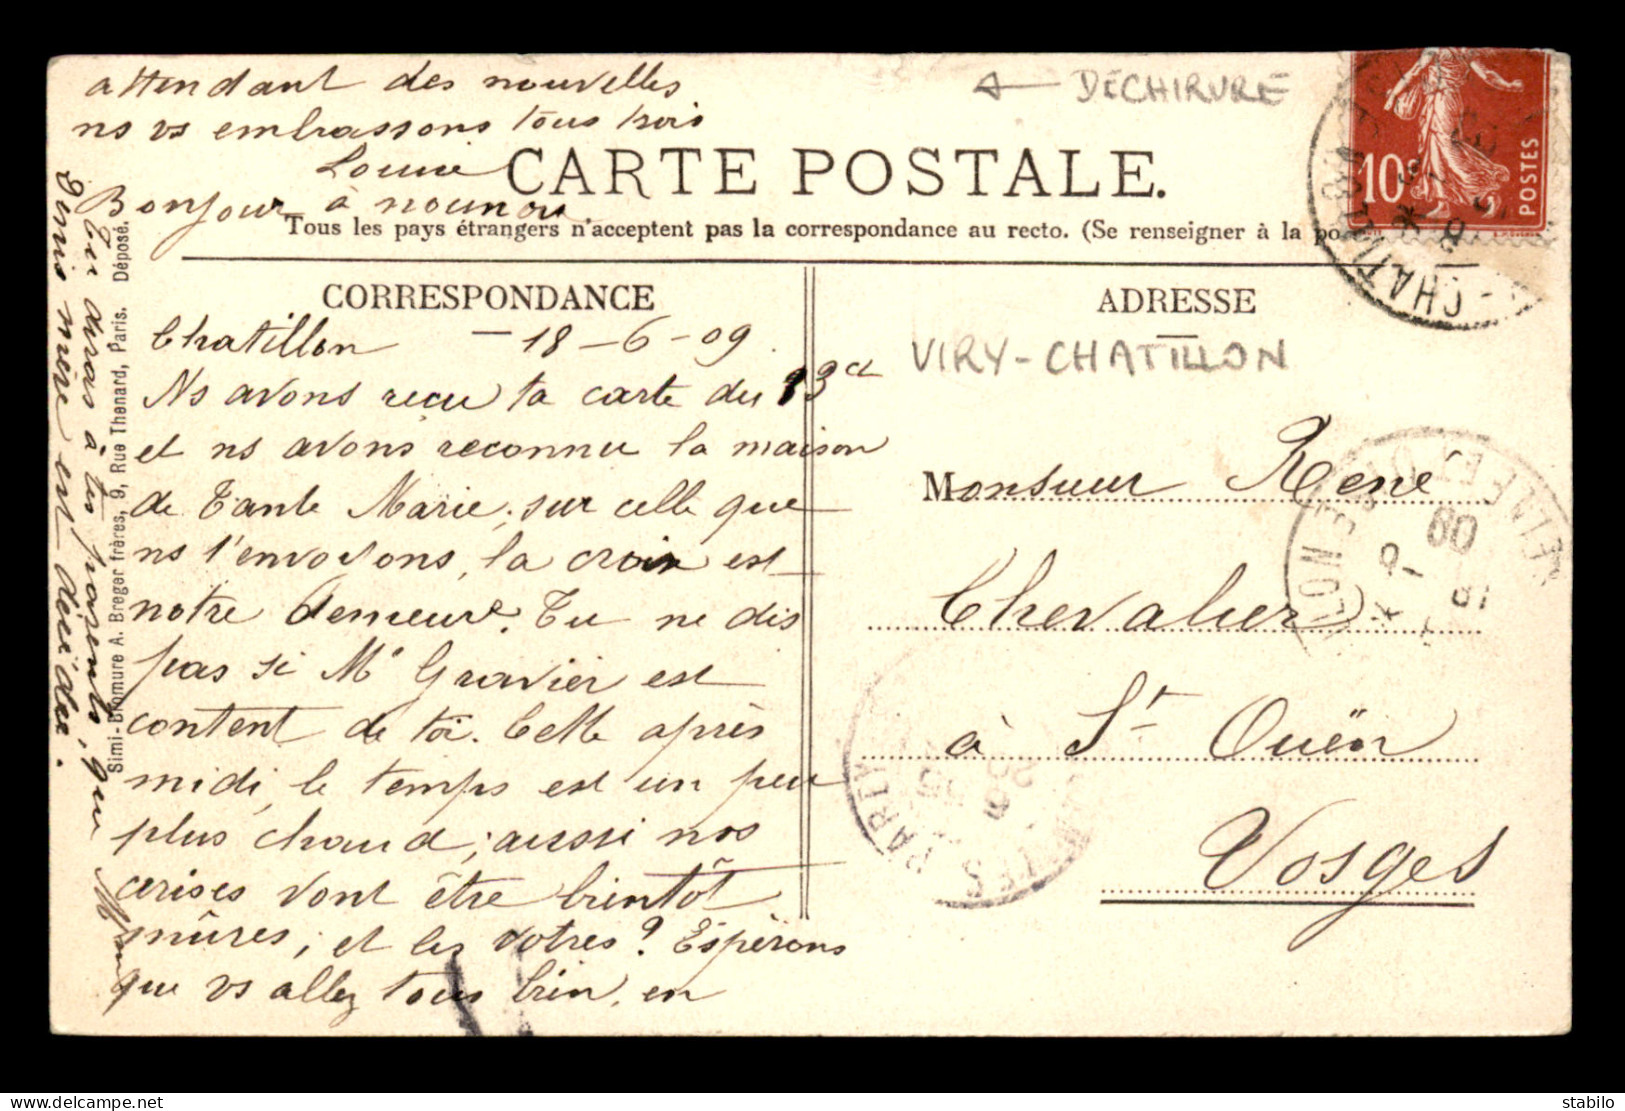 attendant des nouvelles
ns vs embrassons tous trois
Bonjour à nounou
← DÉCHIRURE
CARTE POSTALE.
Tous les pays étrangers n'acceptent pas la correspondance au recto. (Se renseigner à la po
10c
POSTES
CORRESPONDANCE
ADRESSE
VIRY-CHATILLON
Chatillon - 18-6-09
Ns avons reçu ta carte du 13 ct
et ns avons reconnu la maison
de Tante Marie, sur celle que
ns t'envoyons, la croix est
notre demeure. Tu ne dis
pas si Mr Gravier est
content de toi. Cette après
midi, le temps est un peu
plus chaud, aussi nos
cerises vont être bientôt
mûres, et les votres? Espérons
que vs allez tous bien, en
Monsieur René
Chevalier
à St Ouën
Vosges
Tu diras à tes parents, que Mme
Denis mère est décédée.
Simi-Bromure A. Breger frères, 9, Rue Thenard, Paris. Déposé.
delcampe.net
stabilo